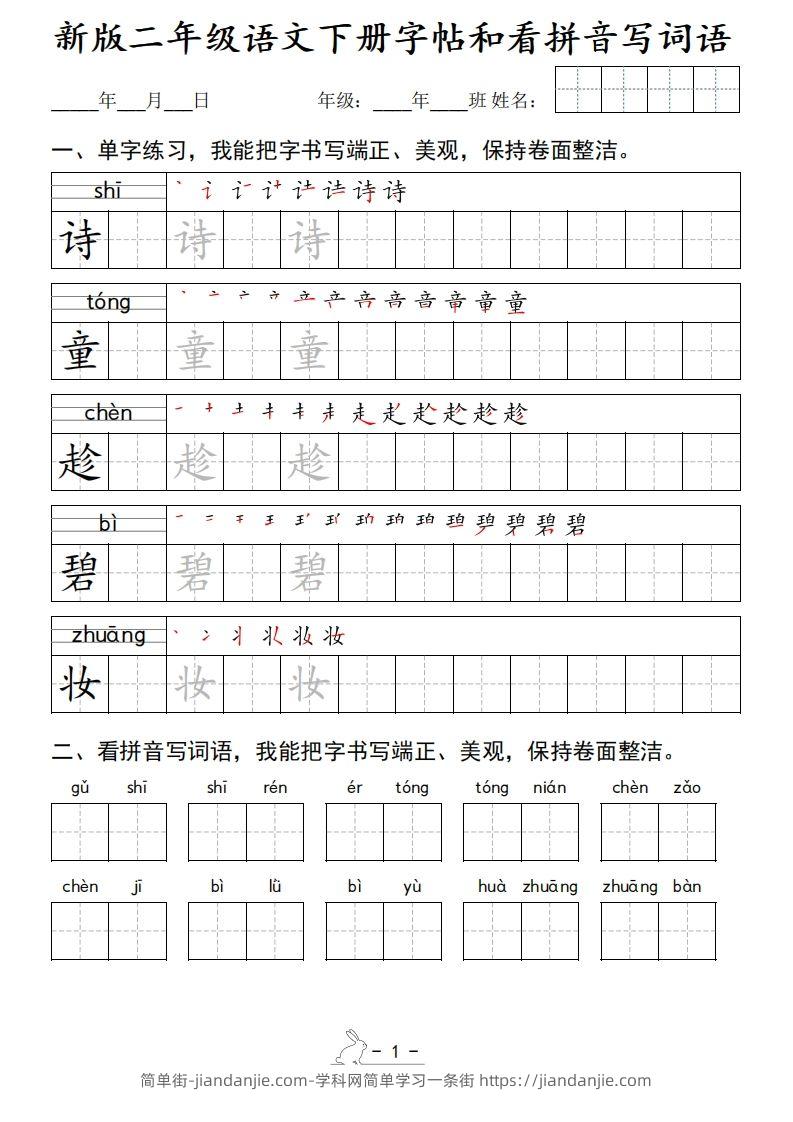 新版二年级语文下册字帖和看拼音写词语
_____年___月___日 年级：____年____班 姓名：
一、单字练习，我能把字书写端正、美观，保持卷面整洁。
shī
诗 诗 诗
tóng
童 童 童
chèn
趁 趁 趁
bì
碧 碧 碧
zhuāng
妆 妆 妆
二、看拼音写词语，我能把字书写端正、美观，保持卷面整洁。
gǔ shī shī rén ér tóng tóng nián chèn zǎo
chèn jī bì lǜ bì yù huà zhuāng zhuāng bàn
- 1 -
简单街-jiandanjie.com-学科网简单学习一条街 https://jiandanjie.com